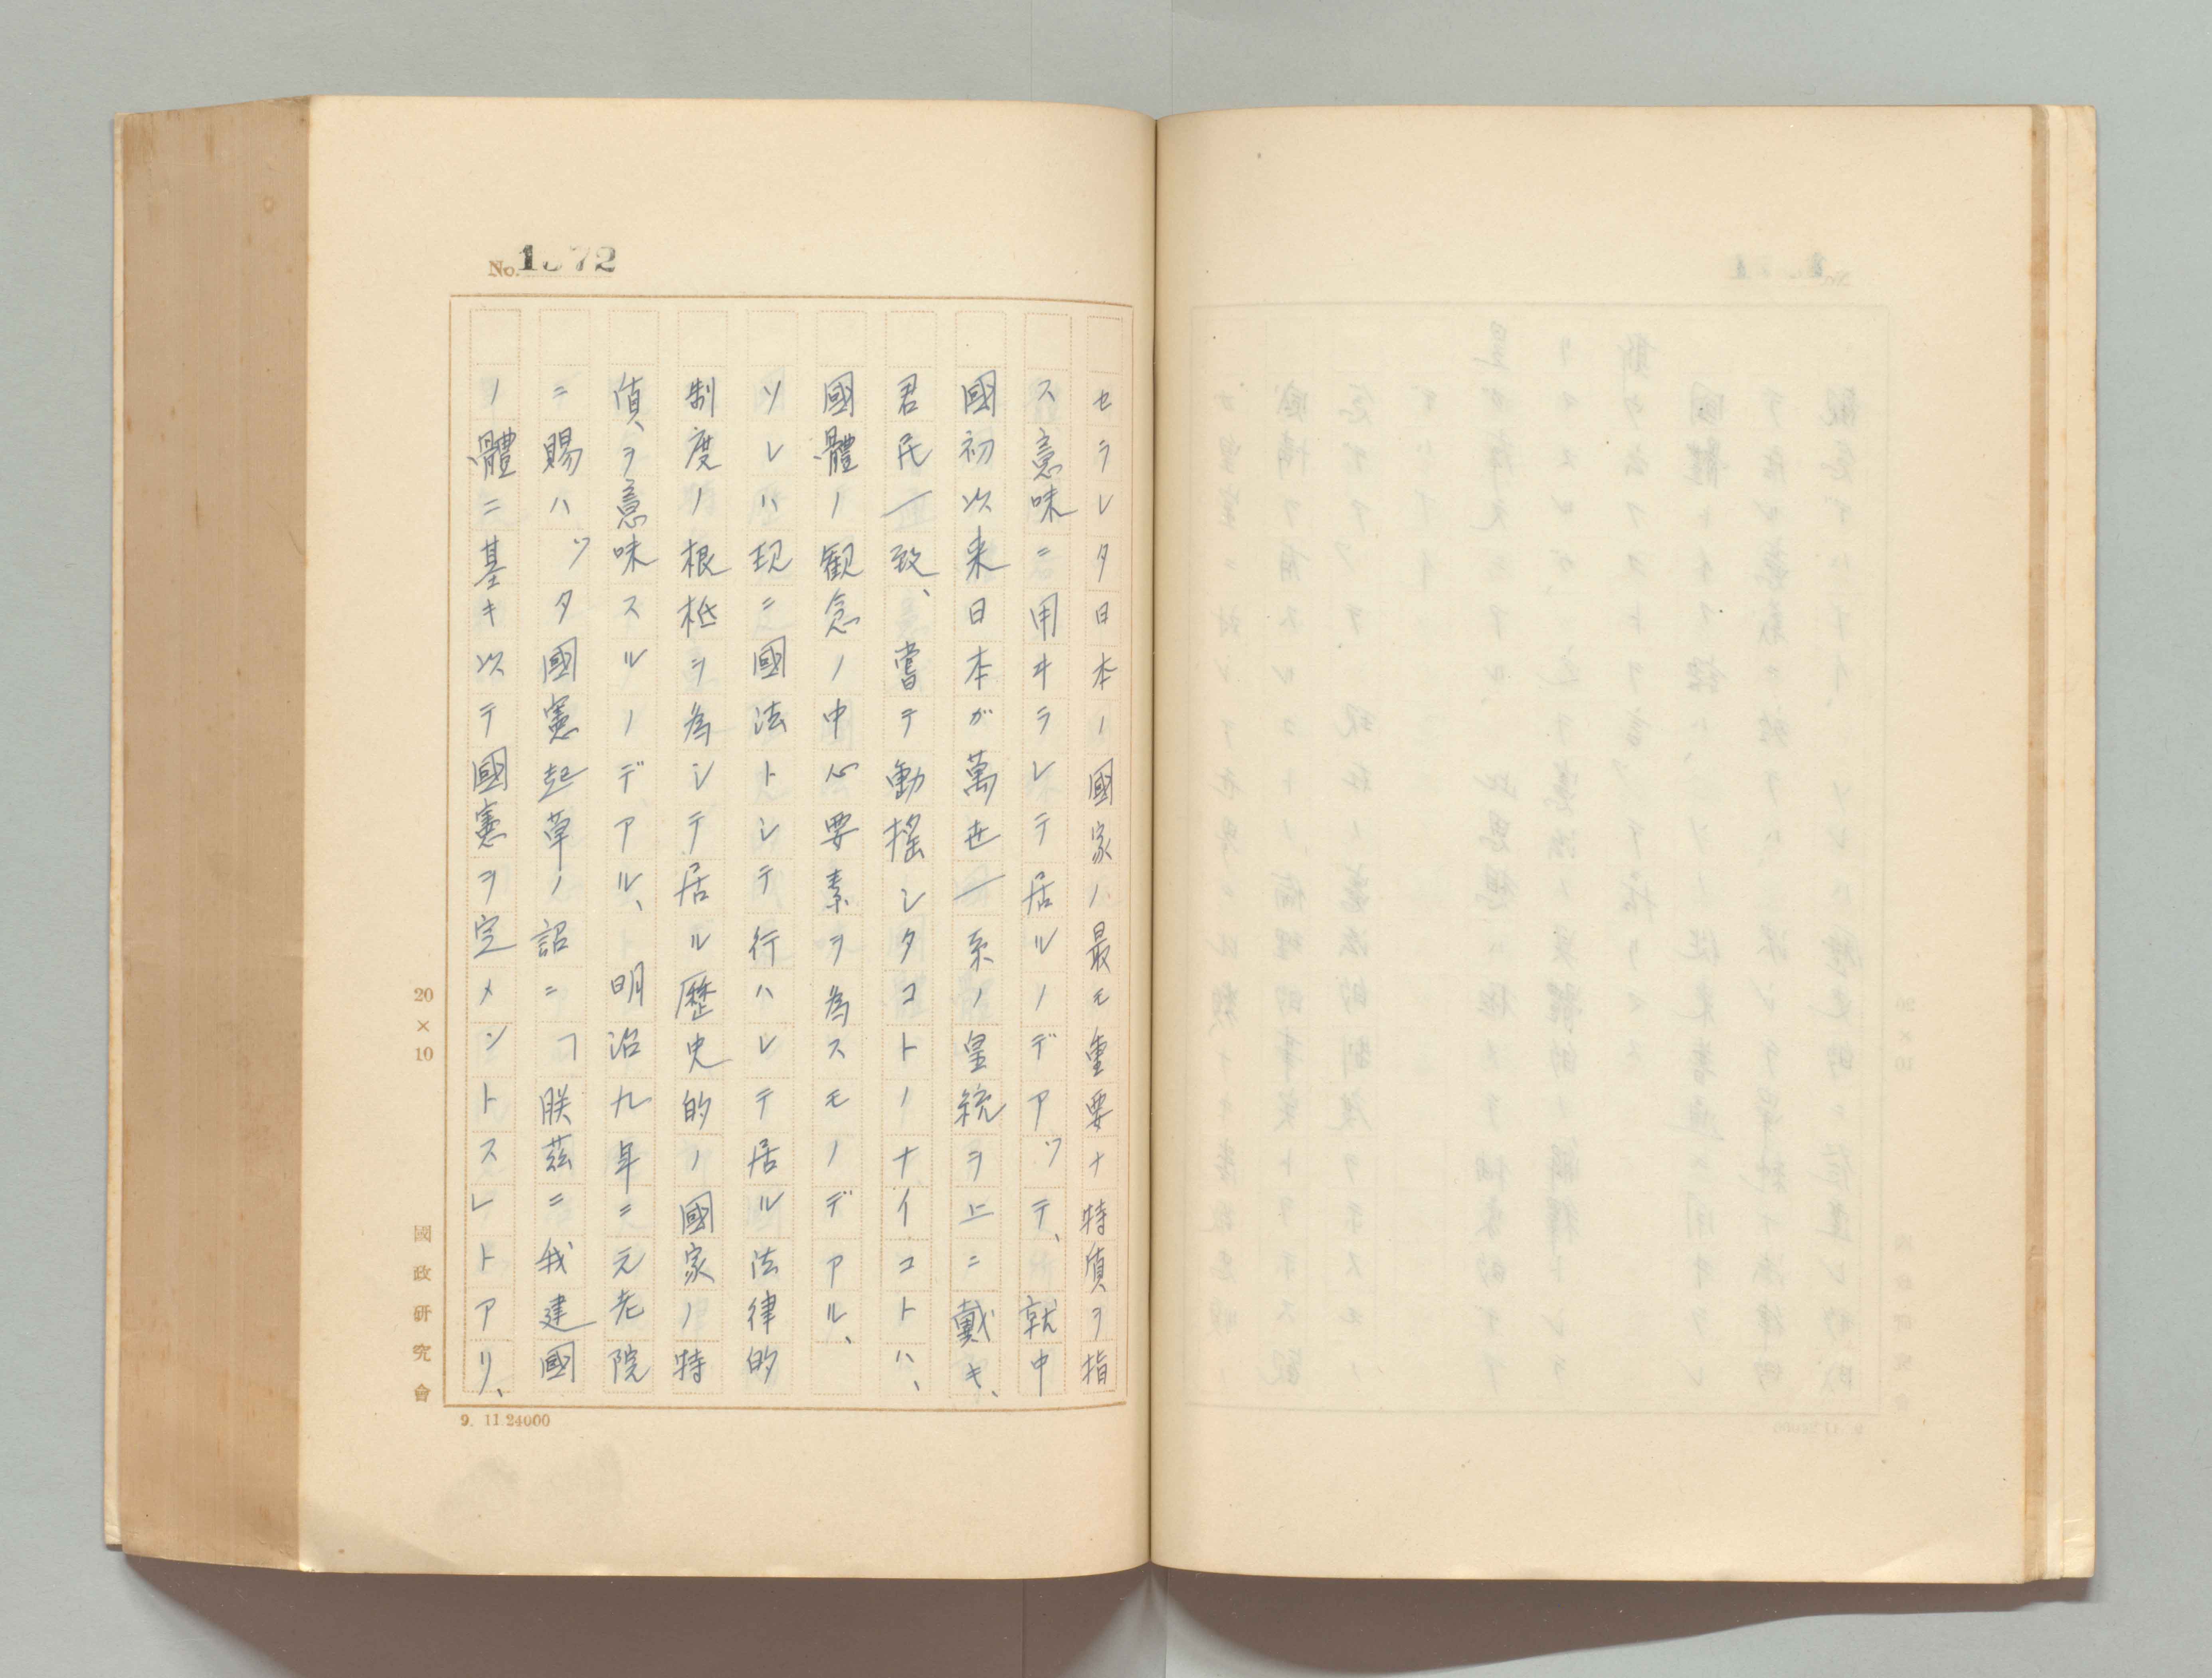 No. 1372
セラレタ日本ノ國家ノ最モ重要ナ特質ヲ指
ス意味ニ用ヰラレテ居ルノデアツテ、就中
國初以来日本ガ萬世一系ノ皇統ヲ上ニ戴キ、
君民一致、嘗テ動揺シタコトノナイコトハ、
國體ノ観念ノ中心要素ヲ為スモノデアル、
ソレハ現ニ國法トシテ行ハレテ居ル法律的
制度ノ根柢ヲ為シテ居ル歴史的ノ國家ノ特
質ヲ意味スルノデアル、明治九年ニ元老院
ニ賜ハツタ國憲起草ノ詔ニ「朕茲ニ我建國
ノ體ニ基キ以テ國憲ヲ定メントスレトアリ、
20×10
國政研究會
9. 11 24000